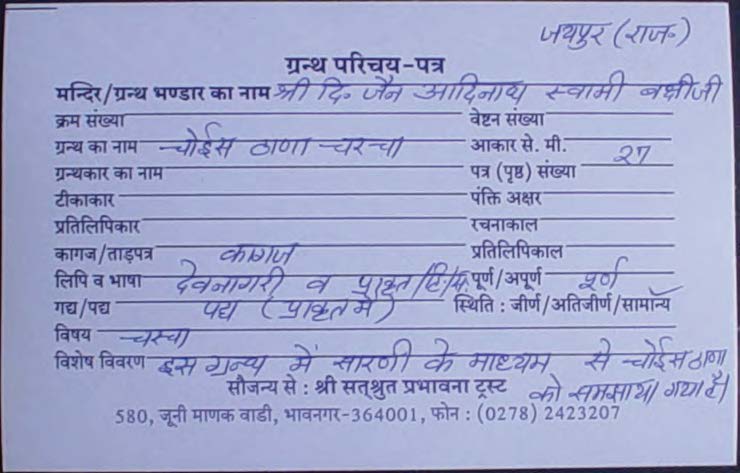 जयपुर (राज॰)
ग्रन्थ परिचय-पत्र
मन्दिर/ग्रन्थ भण्डार का नाम श्री दि॰ जैन आदिनाथ स्वामी बक्षीजी
क्रम संख्या वेष्टन संख्या
ग्रन्थ का नाम चोईस ठाणा चरचा आकार से. मी.
ग्रन्थकार का नाम पत्र (पृष्ठ) संख्या 27
टीकाकार पंक्ति अक्षर
प्रतिलिपिकार रचनाकाल
कागज/ताड़पत्र कागज प्रतिलिपिकाल
लिपि व भाषा देवनागरी व प्राकृत/हि./सं. पूर्ण/अपूर्ण पूर्ण
गद्य/पद्य पद्य (प्राकृत में) स्थिति : जीर्ण/अतिजीर्ण/सामान्य
विषय चरचा
विशेष विवरण इस ग्रन्थ में सारणी के माध्यम से चोईस ठाणा
सौजन्य से : श्री सत्श्रुत प्रभावना ट्रस्ट को समझाया गया है।
580, जूनी माणक वाडी, भावनगर-364001, फोन : (0278) 2423207